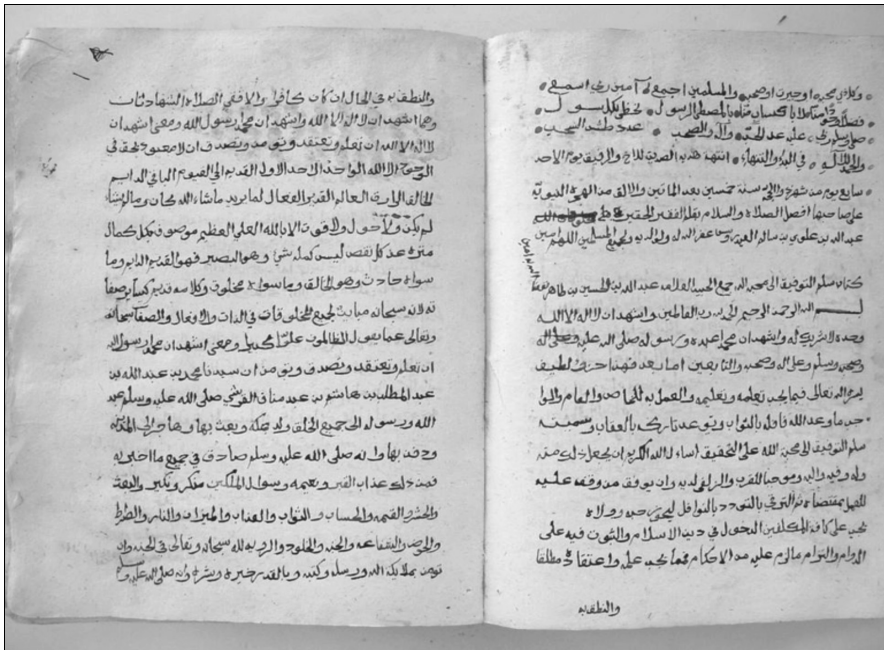 وكل محبه او حيرن او صحبه والمسلمين اجمع آمين ربي اسمع
بالمصطفى الرسول نحظى بكل سول
صلى وسلم ربي عليه عد الحبه وآله والصحب عدد طش السحب
والحمد للاله في البدء والتناه انتهة هذه الصديق للاخ والرفيق يوم الاحد
سابع يوم من شهر سنة خمسين بعد المأتين والالف من الهجرة النبويه
على صاحبها افضل الصلاة والسلام بقلم الفقير الحقير
عبد الله بن علوي بن سالم غفر الله له ولوالديه ولجميع المسلمين اللهم امين
كتاب سلم التوفيق الى محبة الله جمع الحبيب العلامه عبد الله بن الحسين بن طاهر
بسم الله الرحمن الرحيم الحمد لله رب العالمين واشهد ان لا اله الا الله
وحده لا شريك له واشهد ان محمدا عبده ورسوله صلى الله عليه
وصحبه وسلم وعلى اله وصحبه والتابعين اما بعد فهذا جزء لطيف
يسره الله تعالى فيما يجب تعلمه وتعليمه والعمل به للخاص والعام والوا
جب ما وعد الله فاعله بالثواب وتوعد تاركه بالعقاب وسميته
سلم التوفيق الى محبة الله على التحقيق اسأل الله الكريم ان يجعل ذلك منه
وله وفيه واليه وموجبا للقرب والزلفى لديه وان يوفق من وقف عليه
للعمل بمقتضاه ثم الترقي بالتودد بالنوافل ليحوز حبه وولاه
يجب على كافة المكلفين الدخول في دين الاسلام والثبوت فيه على
الدوام والتزام ما لزم عليه من الاحكام فمما يجب علمه واعتقاده مطلقا
والنطق به
والنطق به في الحال ان كان كافرا والا ففي الصلاة الشهادتان
وهما اشهد ان لا اله الا الله واشهد ان محمد رسول الله ومعنى اشهد ان
لا اله الا الله ان تعلم وتعتقد وتومن وتصدق ان لا معبود بحق في
الوجود الا الله الواحد الاحد الاول القديم الحي القيوم الباقي الدايم
الخالق الرازق العالم القدير الفعال لما يريد ما شاء الله كان وما لم يشاء
لم يكن ولا حول ولا قوة الا بالله العلي العظيم موصوف بكل كمال
منزه عن كل نقص ليس كمثله شي وهو السميع البصير فهو القديم الدايم وما
سواه حادث وهو الخالق وما سواه مخلوق وكلامه قديم كساير صفا
ته لانه سبحانه مباين لجميع المخلوقات في الذات والافعال والصفات سبحانه
وتعالى عما يقول الظالمون علوا كبيرا ومعنى اشهد ان محمد رسول الله
ان تعلم وتعتقد وتصدق وتومن ان سيدنا محمد بن عبد الله بن
عبد المطلب بن هاشم بن عبد مناف القرشي صلى الله عليه وسلم عبد
الله ورسوله الى جميع الخلق ولد بمكة وبعث بها وهاجر الى المدينه
ودفن بها وانه صلى الله عليه وسلم صادق في جميع ما اخبر به
فمن ذلك عذاب القبر ونعيمه وسوال الملكين منكر ونكير والبعث
والحشر والقيمه والحساب والثواب والعذاب والميزان والنار والصراط
والحوض والشفاعه والجنه والخلود والرويه لله سبحانه وتعالى في الجنه وان
تومن بملايكة الله ورسله وكتبه وبالقدر خيره وشره وانه صلى الله عليه وسلم